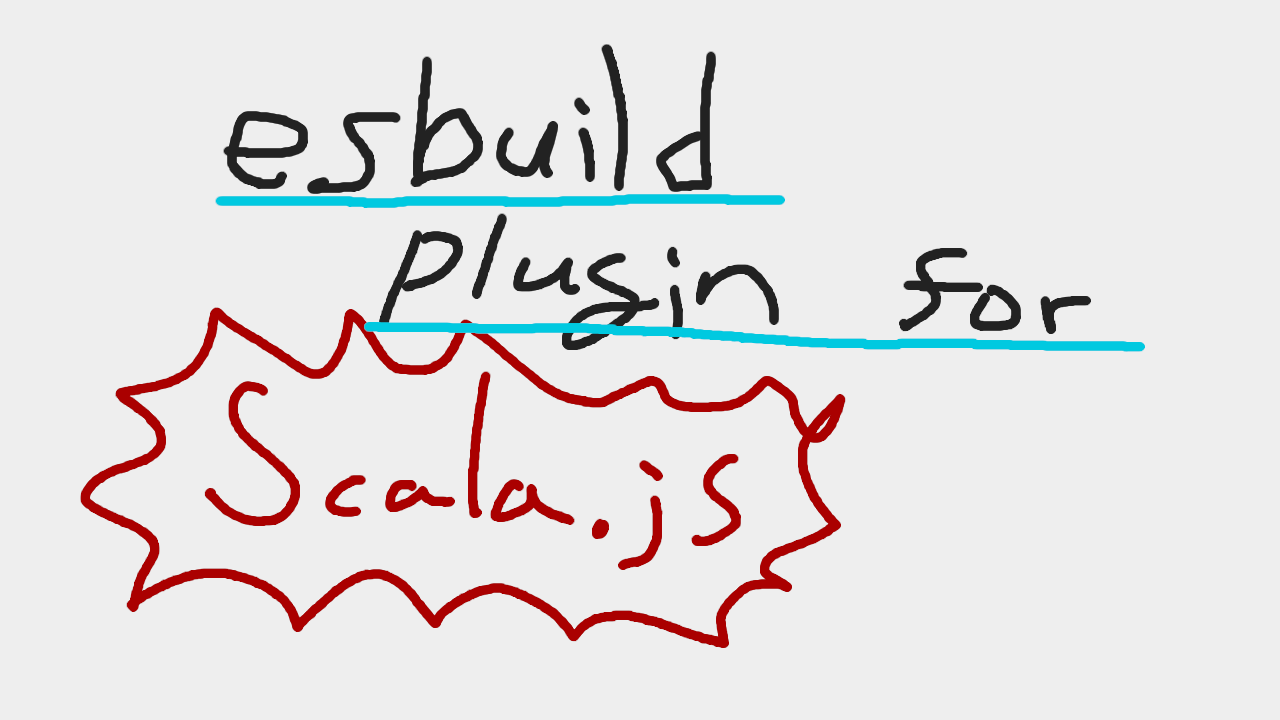 esbuild
plugin for
Scala.js